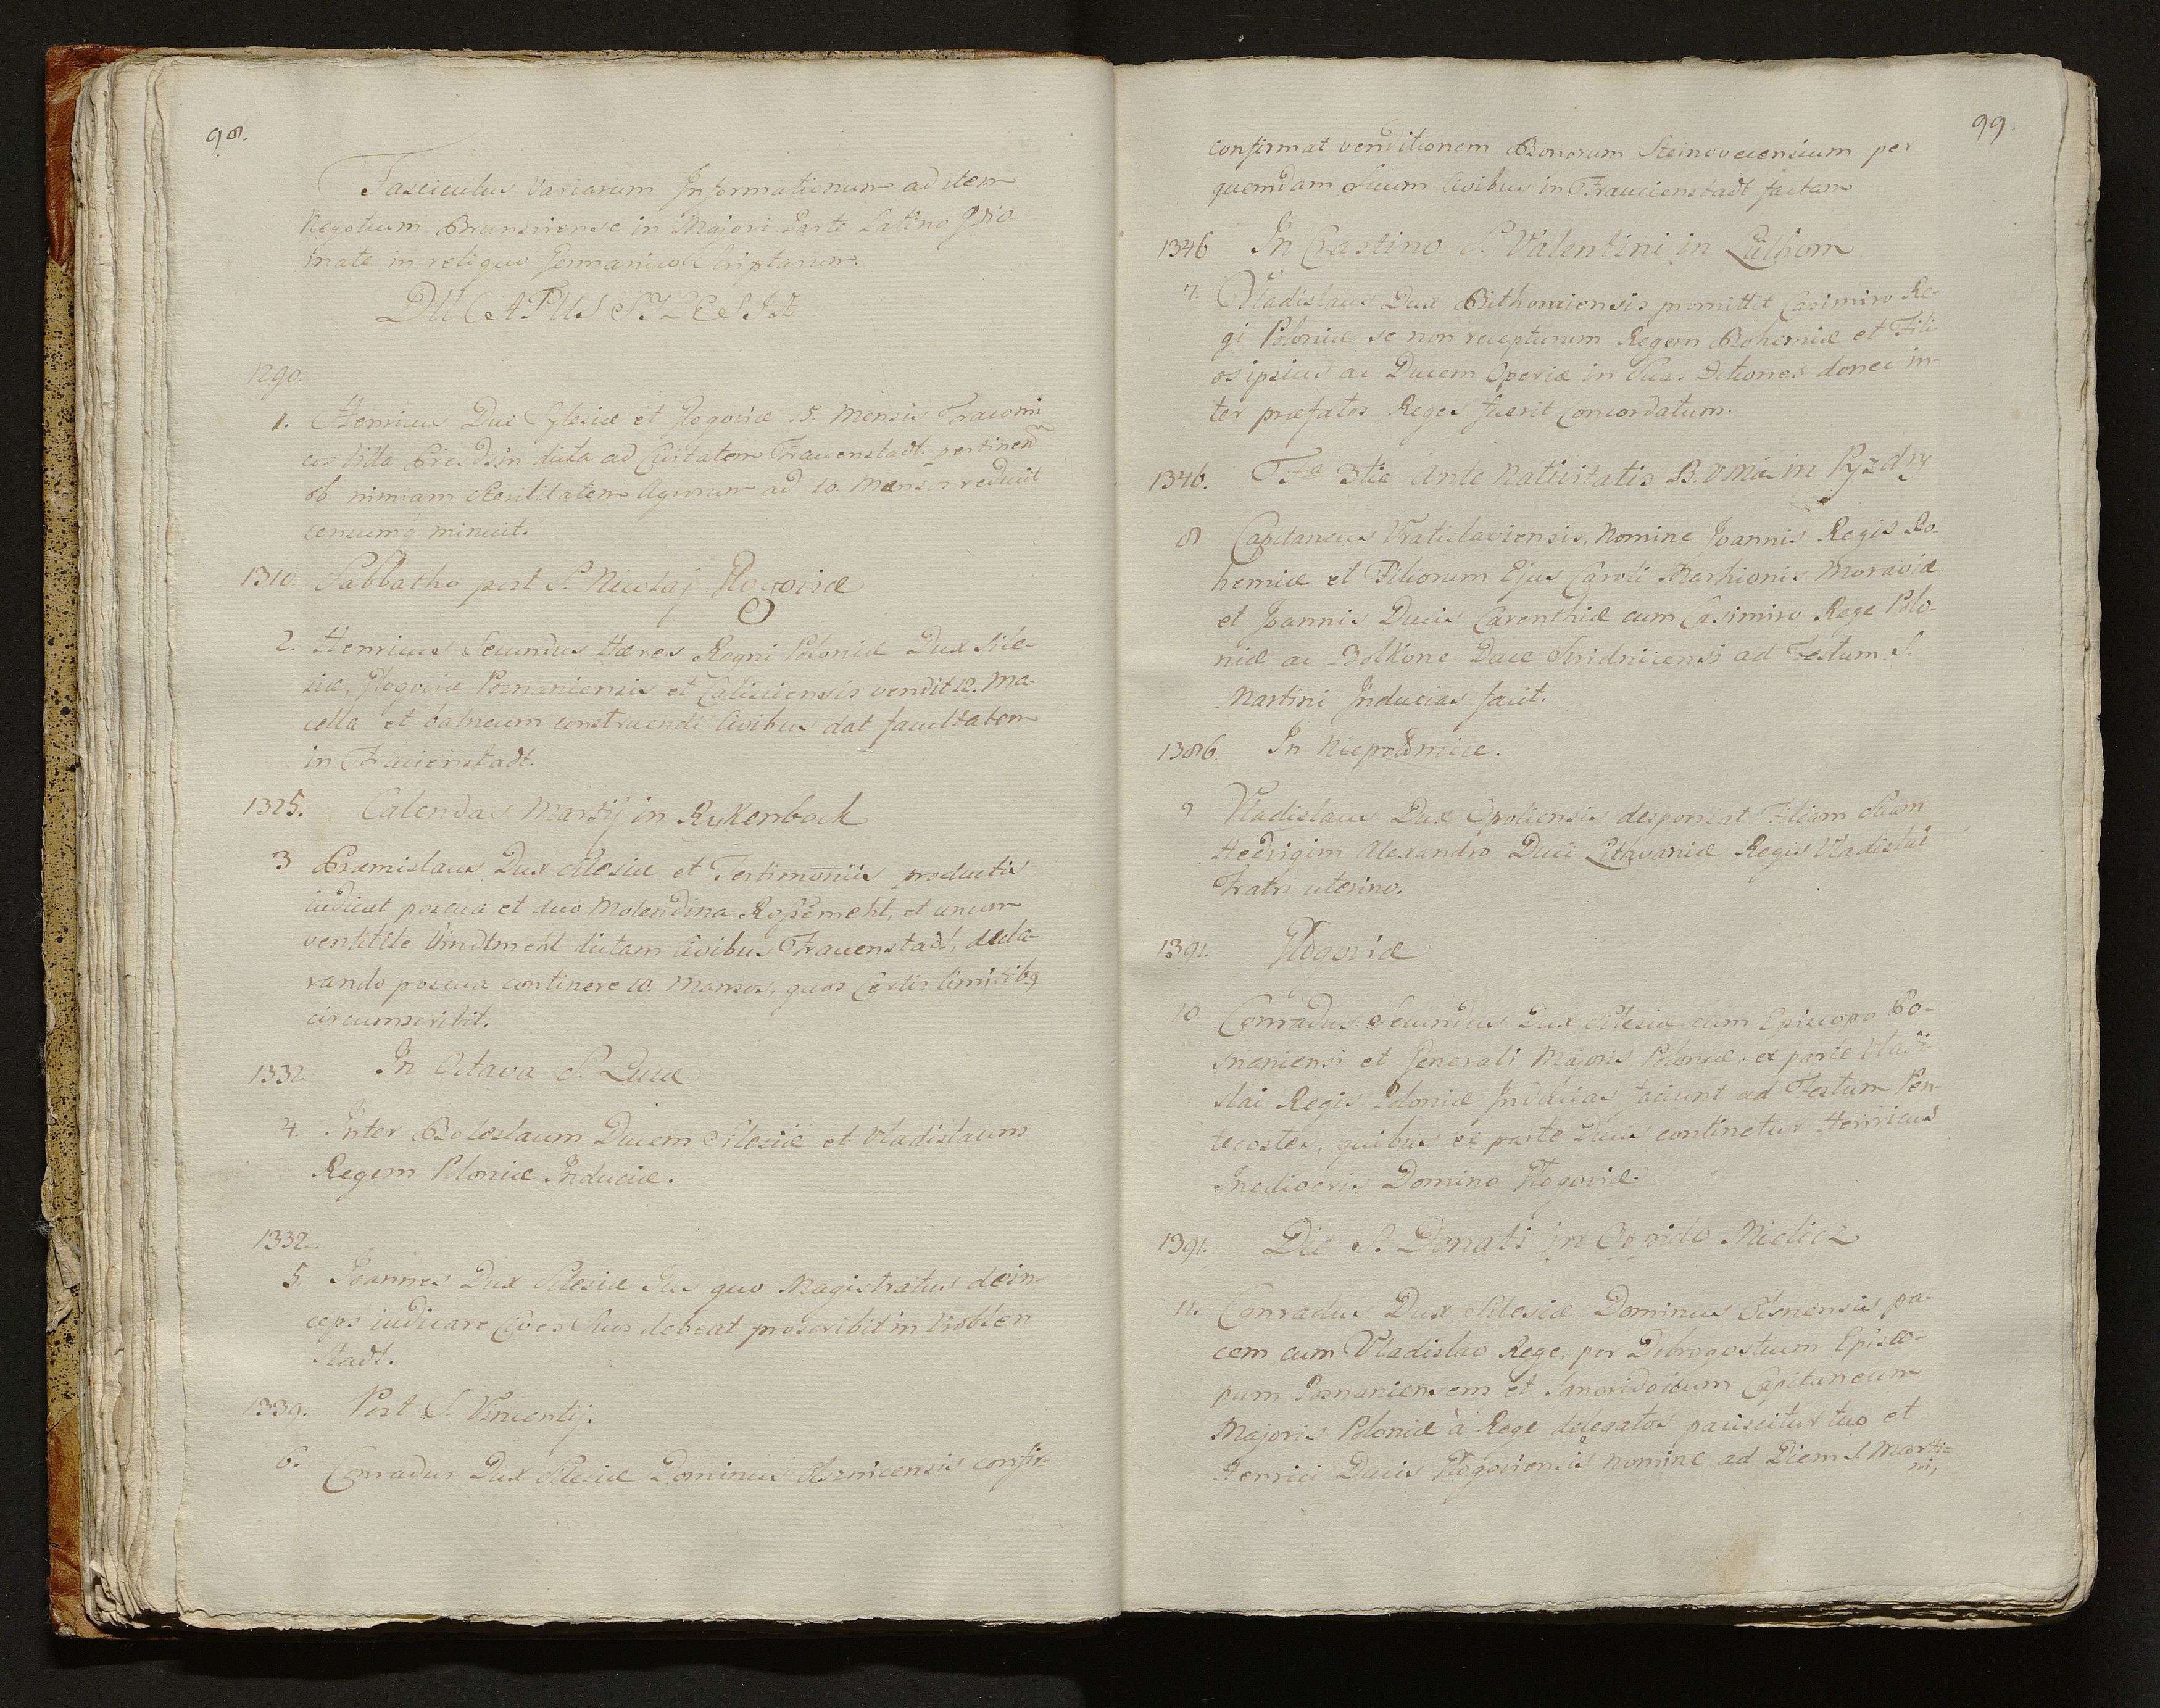 98.
Fasciculus Variarum Informationum ad idem
Negotium Brunsviense in Majori Parte Latino Idio
mate in reliquo Germanico Scriptarum.
DUCATUS SILESIÆ
1290.
1. Henricus Dux Sylesiæ et Glogoviæ 15. Mensis
Villa dicta ad Civitatem Frauenstadt pertinen
ob nimiam sterilitatem Agrorum ad 10. Mansos reducit
censumq minuit.
1310. Sabbatho post S. Nicolaj Glogoviæ
2. Henricus Secundus Hæres Regni Poloniæ Dux Sile-
siæ, Glogoviæ Posnaniensis et Calisiensis vendit 12. Ma-
cella et balneum construendi Civibus dat facultatem
in Frauenstadt.
1325. Calendas Martij in Rykenbach
3 Præmislaus Dux Silesiæ et Testimoniis productis
iudicat pascua et duo Molendina Roßemehl, et unum
ventitile Vindtmehl dictam Civibus Frauenstadt, decla-
rando pascua continere 10. Mansos, quos Certis limitibq
circumscribit.
1332. In Octava S. Lucæ
4. Inter Boleslaum Ducem Silesiæ et Vladislaum
Regem Poloniæ Induciæ.
1332.
5. Joannes Dux Silesiæ Jus quo Magistratus dein-
ceps iudicare Cives Suos debeat proscribit in
stadt.
1339. Post S. Vincentij.
6. Conradus Dux Silesiæ Dominus Olsznicensis confir-
99.
confirmat venditionem Bonorum Steinovecensium per
quemdam Suum Civibus in Frauenstadt factam
1346 In Crastino S. Valentini in Lüthom
7. Vladislaus Dux Bithomiensis promittit Casimiro Re-
gi Poloniæ se non recepturum Regem Bohemiæ et Fili-
os ipsius ac Ducem Operiæ in Suas Ditiones donec in-
ter præfatos Reges fuerit Concordatum.
1346. Fra 3tia ante Nativitatis B. V Mæ in Pyzdry
8 Capitaneus Vratislaviensis, Nomine Joannis Regis Bo-
hemiæ et Filiorum Ejus Caroli Marhionis Moraviæ
et Joannis Ducis Carenthiæ cum Casimiro Rege Polo-
niæ ac Bolkone Duce Suidnicensi ad Festum S.
Martini Inducias facit.
1386. In Niepołomice.
9 Vladislaus Dux Opoliensis desponsat Filiam Suam
Hedvigim Alexandro Duci Lithvaniæ Regis Vladislai
Fratri uterino.
1391. Glogoviæ
10 Conradus Secundus Dux Silesiæ cum Episcopo Po-
snaniensi et Generali Majoris Poloniæ, ex parte Vladi-
slai Regis Poloniæ Inducias faciunt ad Festum Pen-
tecostes, quibus ex parte Ducis continetur Henricus
Inediocris Domino Glogoviæ
1391. Die S. Donati in Oppido Mielicz
11. Conradus Dux Silesiæ Dominus Olsnensis pa-
cem cum Vladislao Rege, per Dobrogostium Episco-
pum Posnaniensem et Capitaneum
Majoris Poloniæ à Rege delegatos paciscitur suo et
Henrici Ducis Glogoviensis nomine ad Diem S. Marti-
ni,